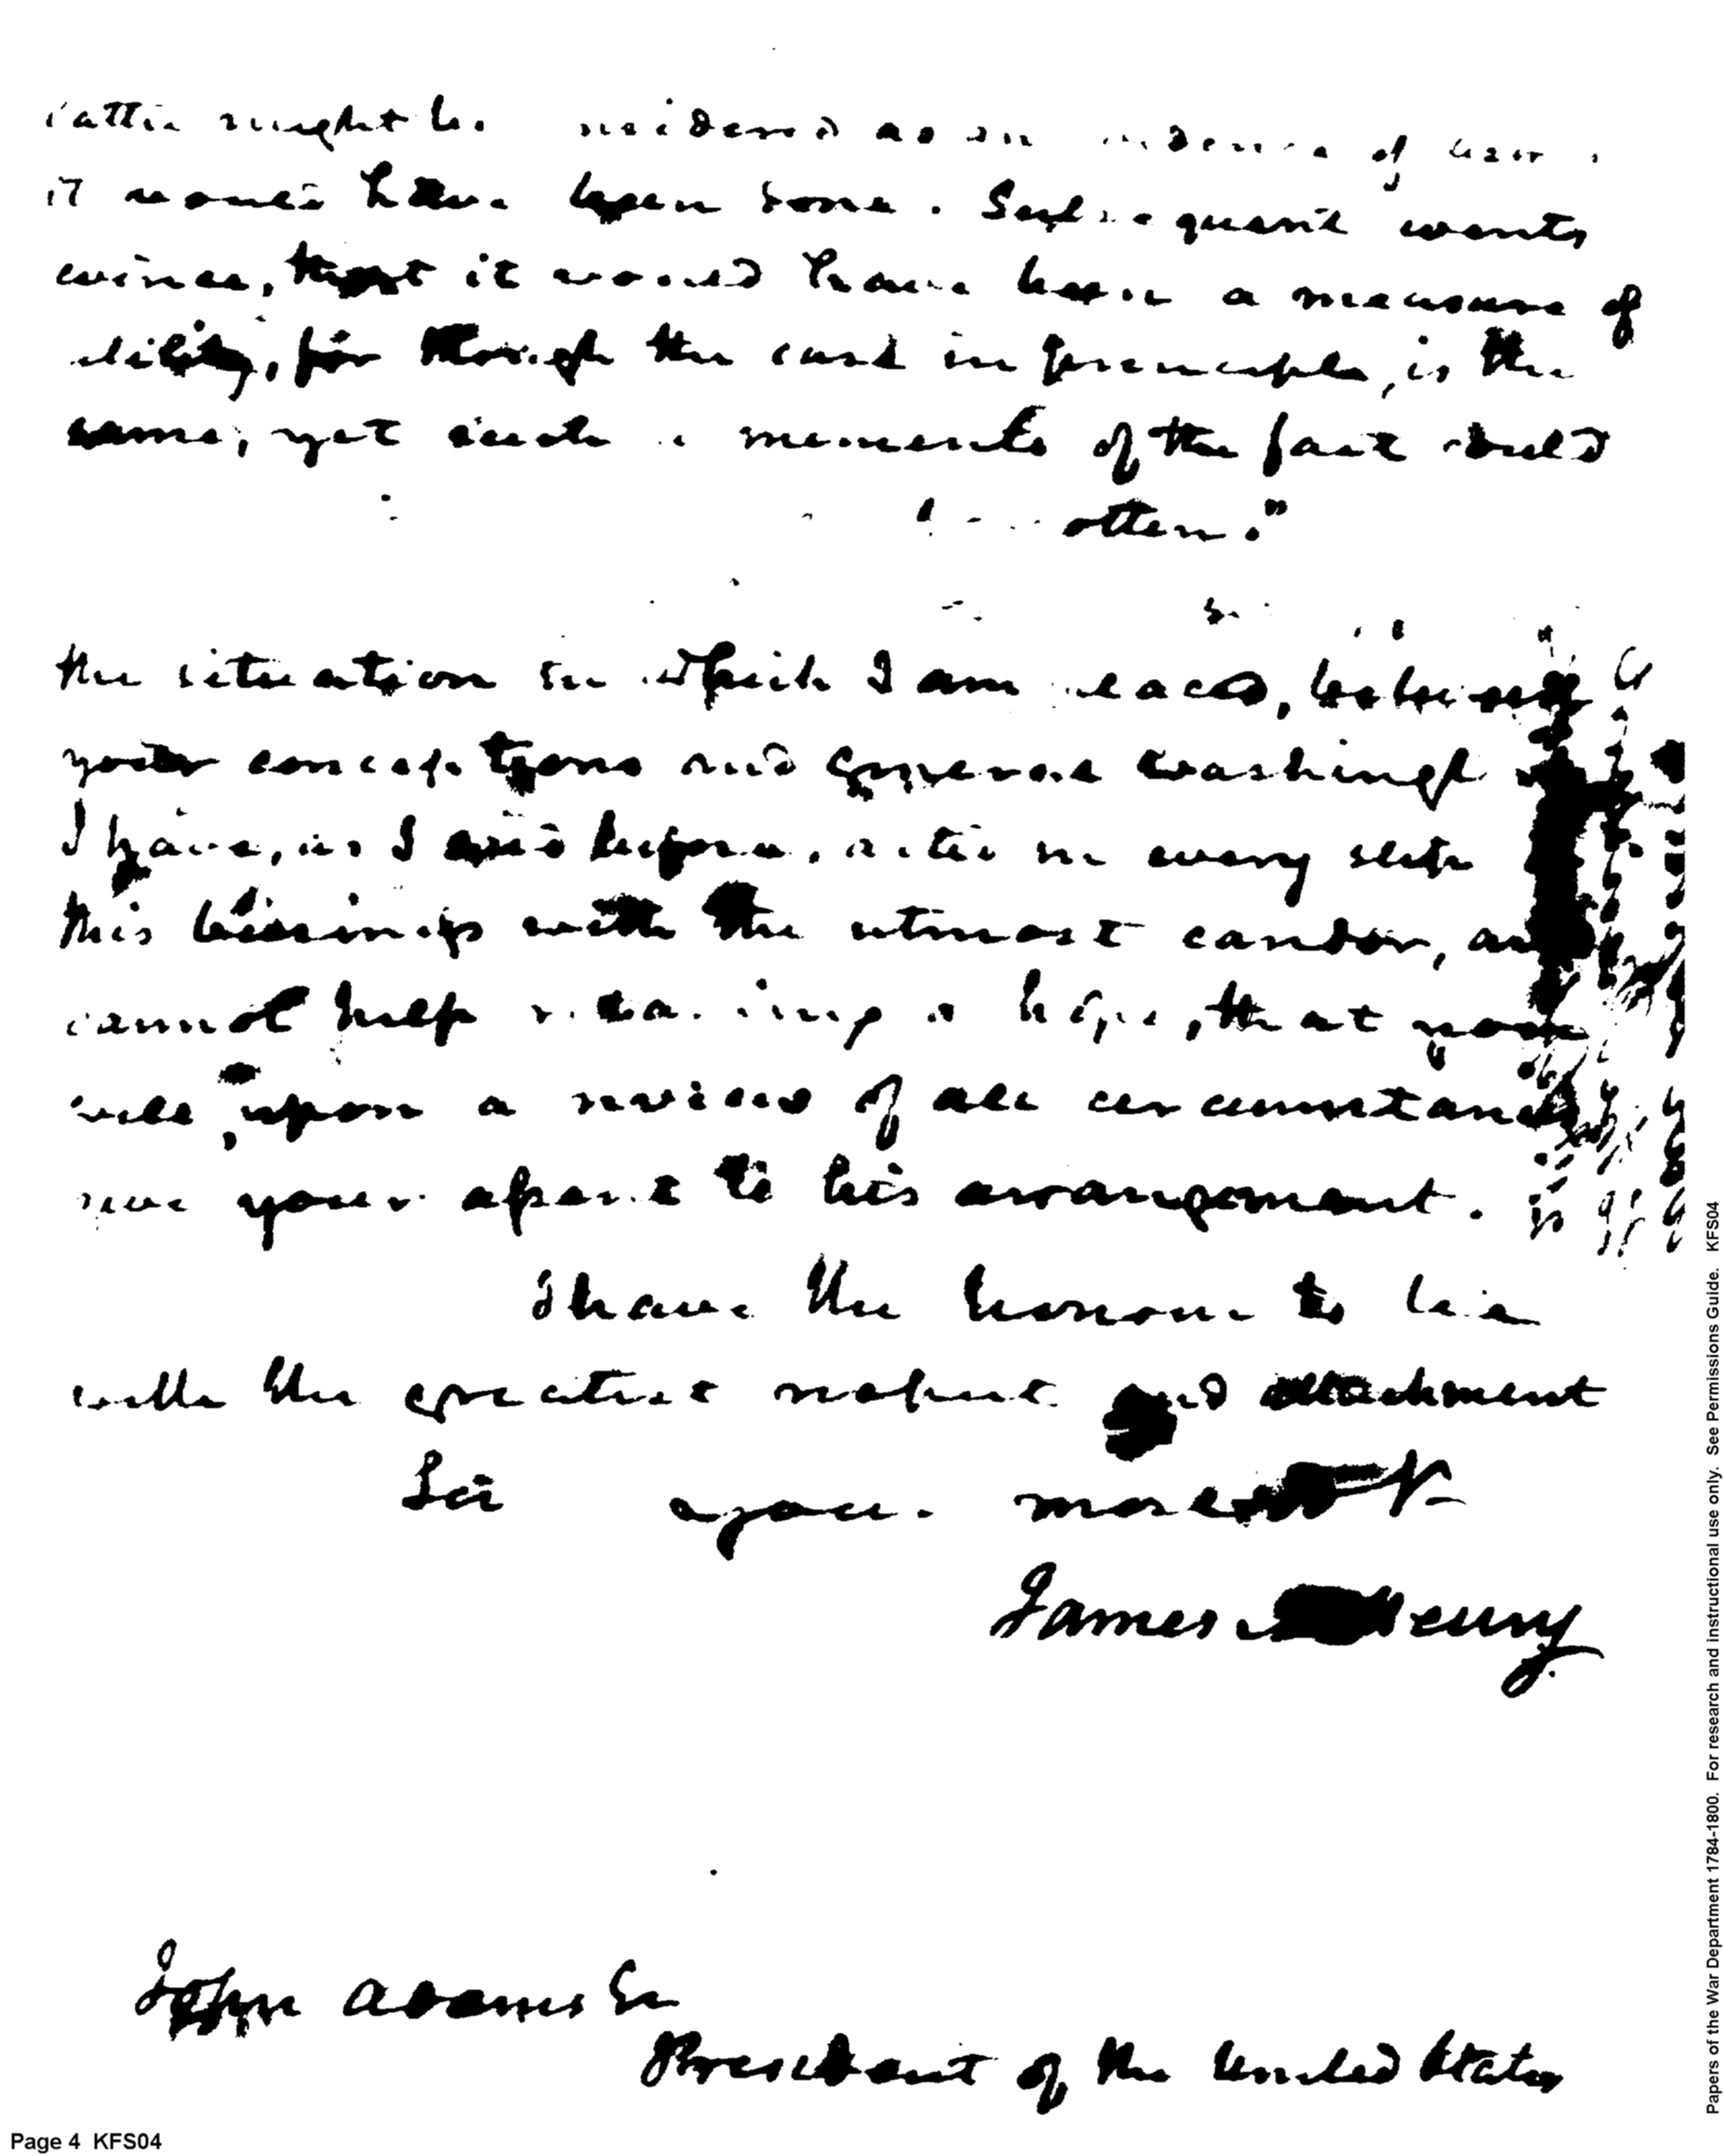 rather might be considered as an evidence of
it would have been done. Subsequent events
evince, that it would have been a measure of
utility, for though the case in principle, is the
same, yet such a memento of the fact could
otten."
the situation in which I am placed, between
your conceptions and General Washington
I have, as I said before, acted in every step
this business with the utmost candor, and
cannot help a hope, that you
will, upon a review of all circumstances
give your assent to his arrangement.
I have the honour to be
with the greatest respect and attachment
Sir your most
James McHenry
John Adams Esr
President of the United States
Page 4 KFS04
Papers of the War Department 1784-1800. For research and instructional use only. See Permissions Guide. KFS04